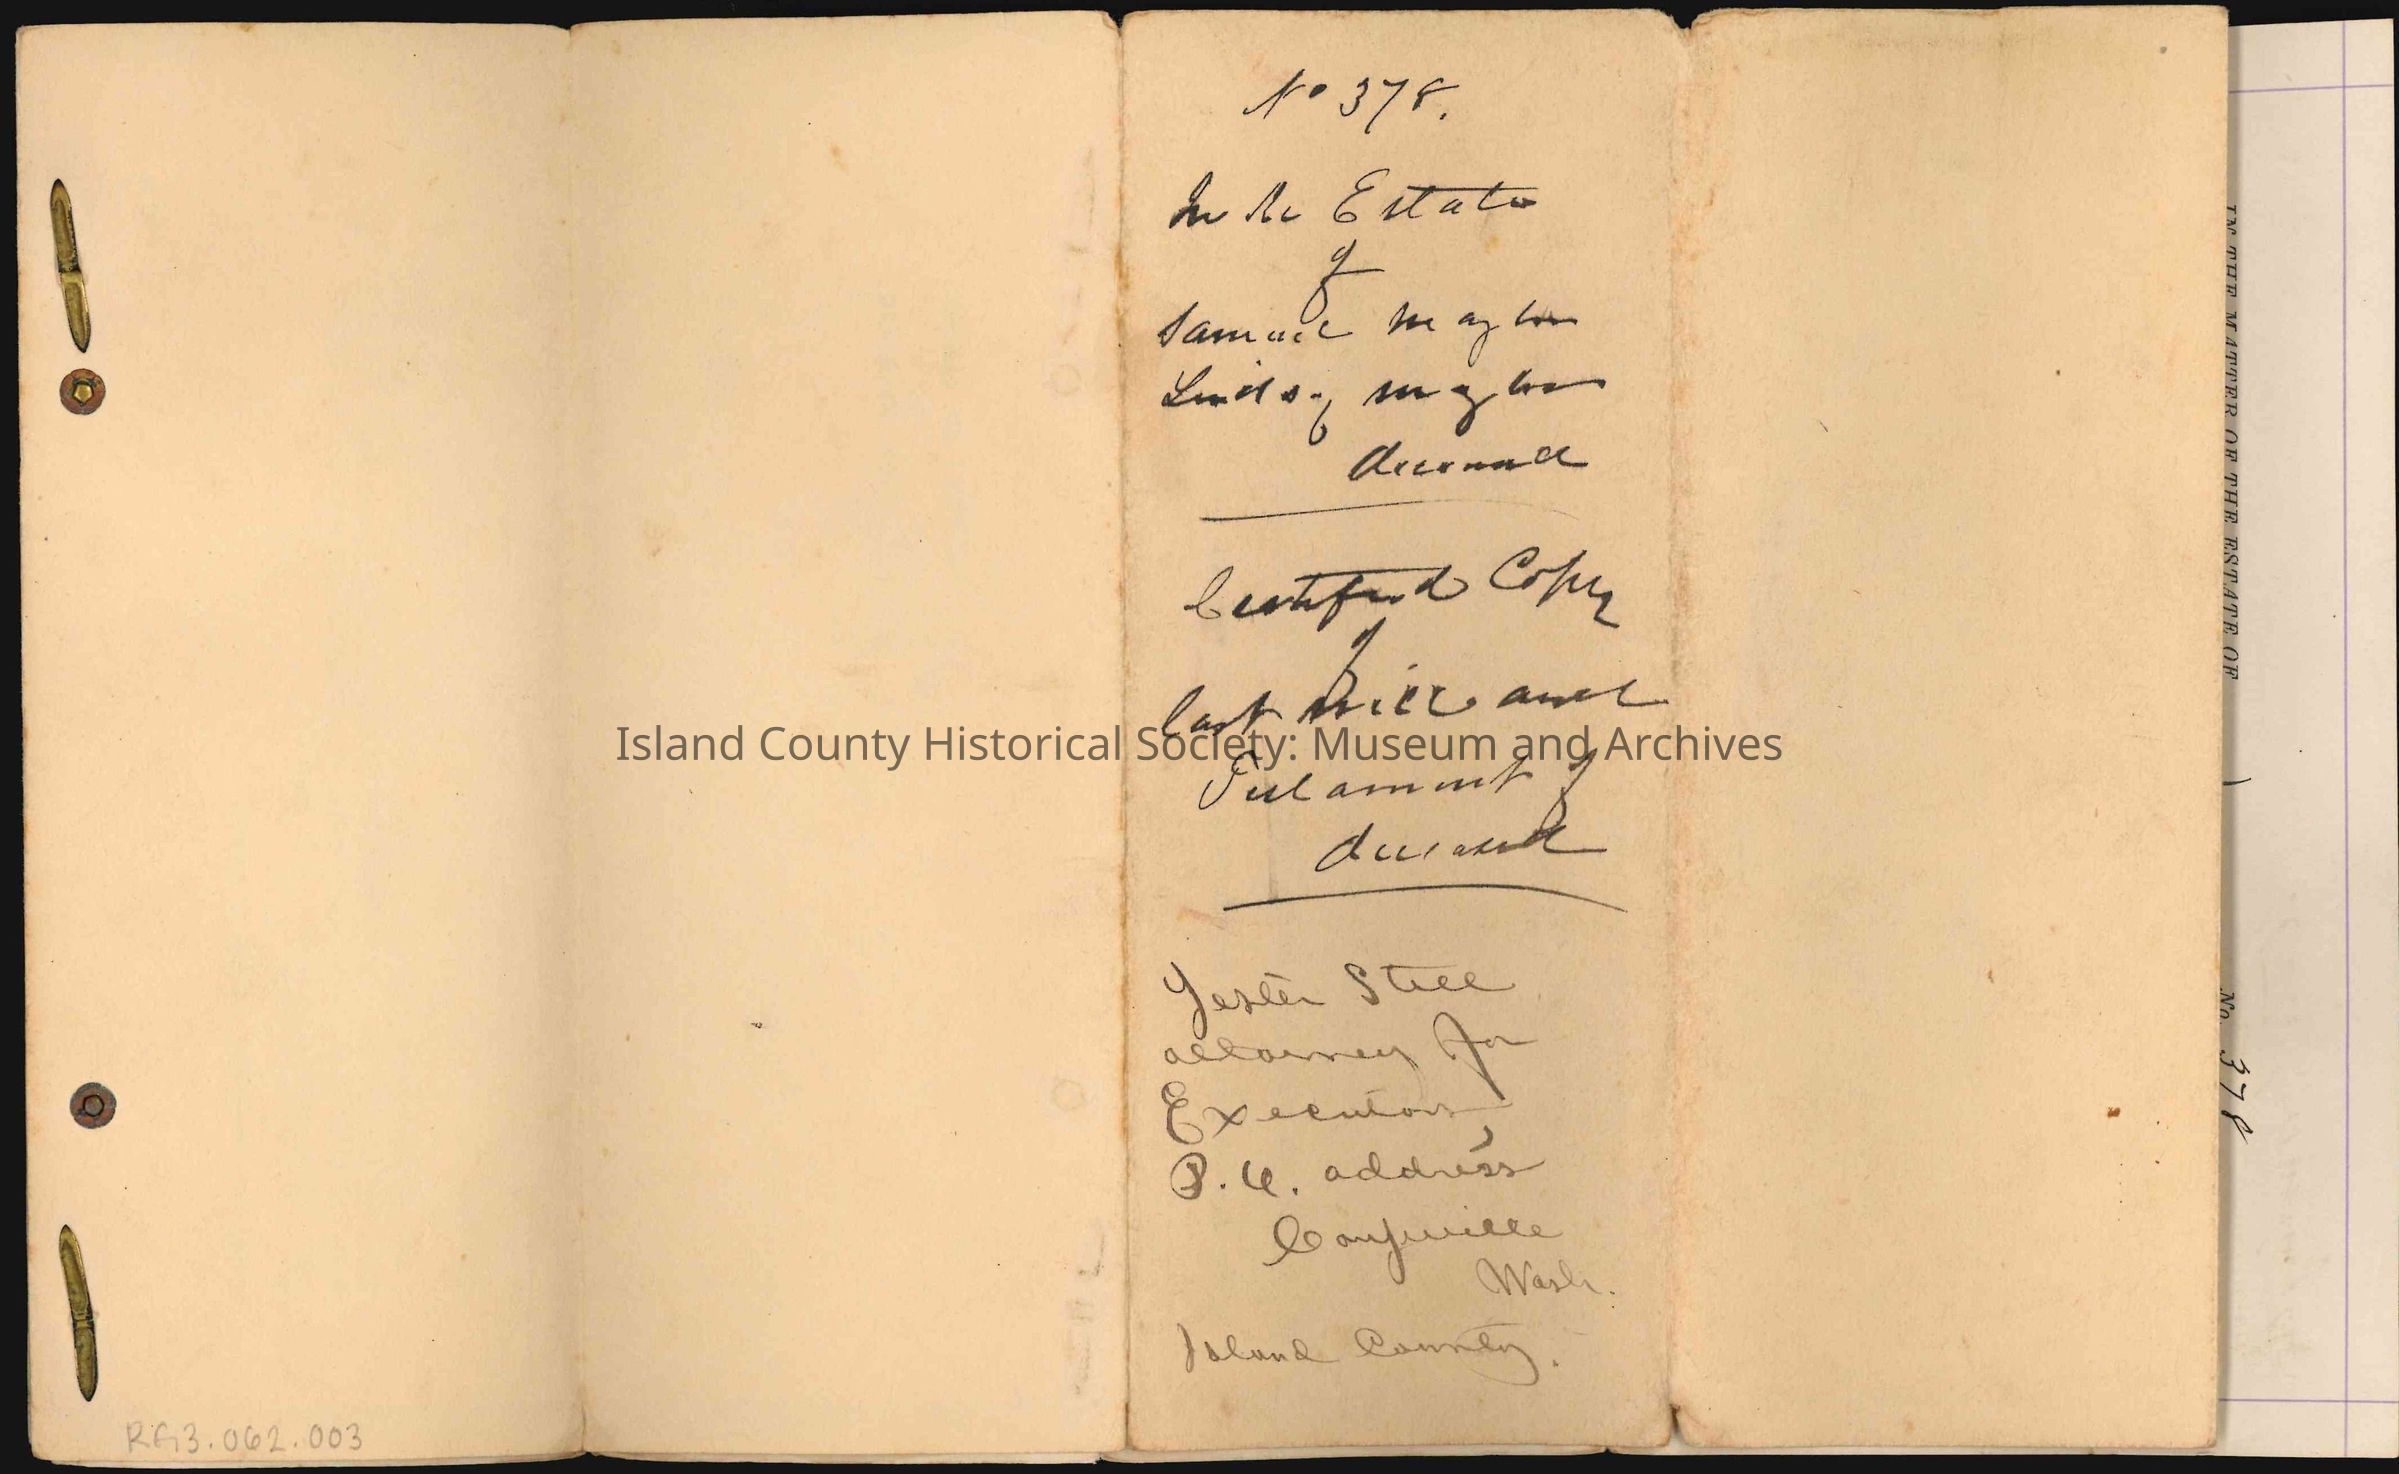 No 378.
In Re Estate
of
Samuel Maylor
Lindsay Maylor
deceased
Certified Copy
of
last will and
Island County Historical Society: Museum and Archives
Testament of
deceased
Lester Still
attorney for
Executors,
P.O. address
Coupeville
Wash.
Island County.
RG3.062.003
IN THE MATTER OF THE ESTATE OF
No. 378